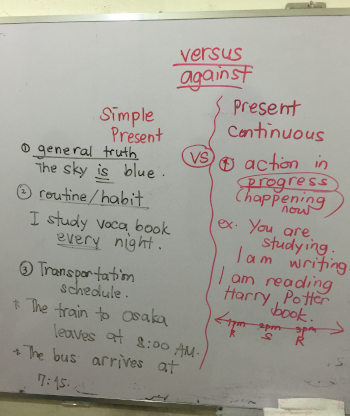 versus
against
Simple
Present
① general truth
The sky is blue.
② routine/habit
I study voca book
every night.
③ Transportation
schedule.
* The train to Osaka
leaves at 8:00 AM.
* The bus arrives at
7:15.
VS
Present
Continuous
① action in
progress
(happening
now)
ex. You are
studying.
I am writing
I am reading
Harry Potter
book.
1pm 2pm 3pm
R S R